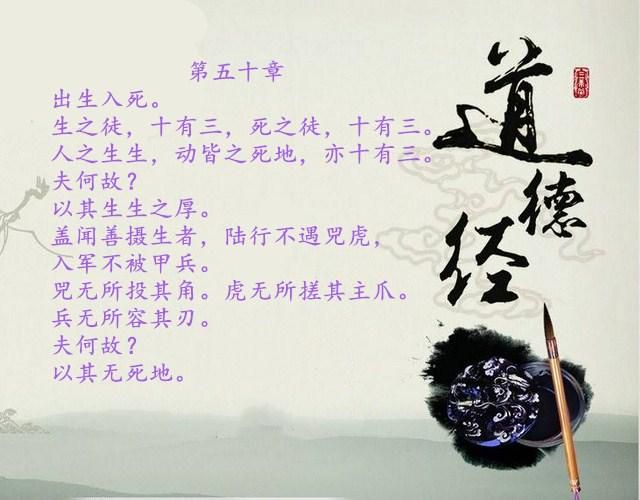 第五十章
出生入死。
生之徒，十有三，死之徒，十有三。
人之生生，动皆之死地，亦十有三。
夫何故？
以其生生之厚。
盖闻善摄生者，陆行不遇咒虎，
入军不被甲兵。
咒无所投其角。虎无所搓其主爪。
兵无所容其刃。
夫何故？
以其无死地。
道德经